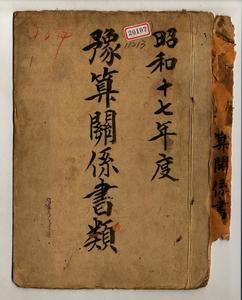 昭和十七年度
豫算關係書類
20107
11213
算關係書